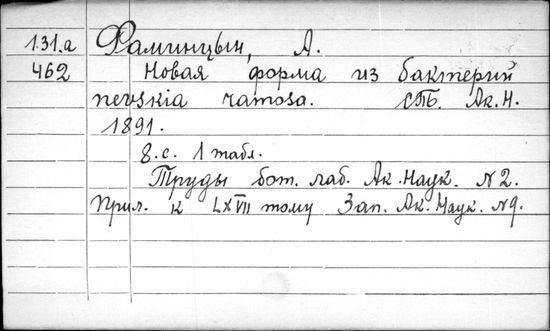 131.a Фаминцын, А.
462 Новая форма из бактерий
nevskia ramosa. СПБ. Ак.Н.
1891.
8.с. 1 табл.
Труды бот. лаб. Ак.Наук. №2.
Прил. к LXVII тому Зап. Ак.Наук. №9.